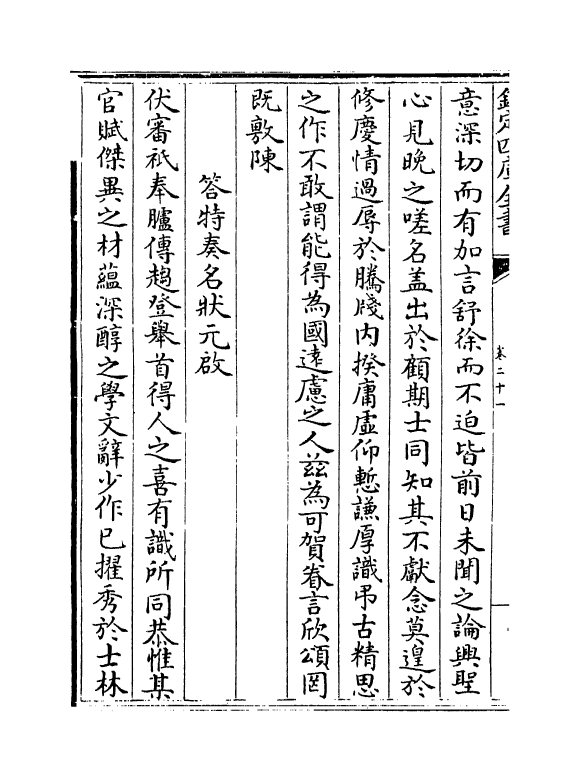 欽定四庫全書
卷二十一
意深切而有加言舒徐而不迫皆前日未聞之論興聖
心見晚之嗟名蓋出於顧期士同知其不獻念莫遑於
修慶情過辱於騰牋内揆庸虛仰慙謙厚識弔古精思
之作不敢謂能得為國遠慮之人兹為可賀眷言欣頌罔
既敷陳
答特奏名狀元啟
伏審祇奉臚傳趨登舉首得人之喜有識所同恭惟其
官賦傑異之材蘊深醇之學文辭少作已擢秀於士林